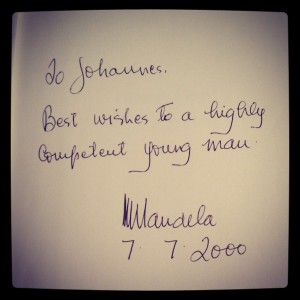 To Johannes.
Best wishes to a highly
competent young man.
NMandela
7. 7. 2000